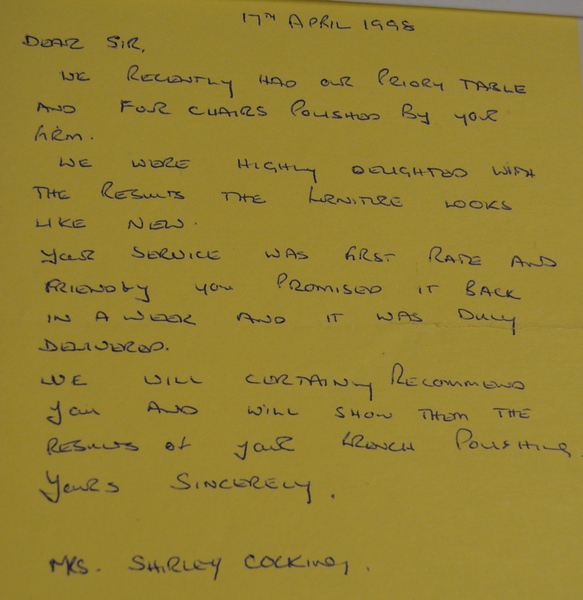 17TH APRIL 1998
DEAR SIR,
WE RECENTLY HAD OUR PRIORY TABLE
AND FOUR CHAIRS POLISHED BY YOUR
FIRM.
WE WERE HIGHLY DELIGHTED WITH
THE RESULTS THE FURNITURE LOOKS
LIKE NEW.
YOUR SERVICE WAS FIRST RATE AND
FRIENDLY YOU PROMISED IT BACK
IN A WEEK AND IT WAS DULY
DELIVERED.
WE WILL CERTAINLY RECOMMEND
YOU AND WILL SHOW THEM THE
RESULTS OF YOUR FRENCH POLISHING.
YOURS SINCERELY.
MRS. SHIRLEY COCKING.